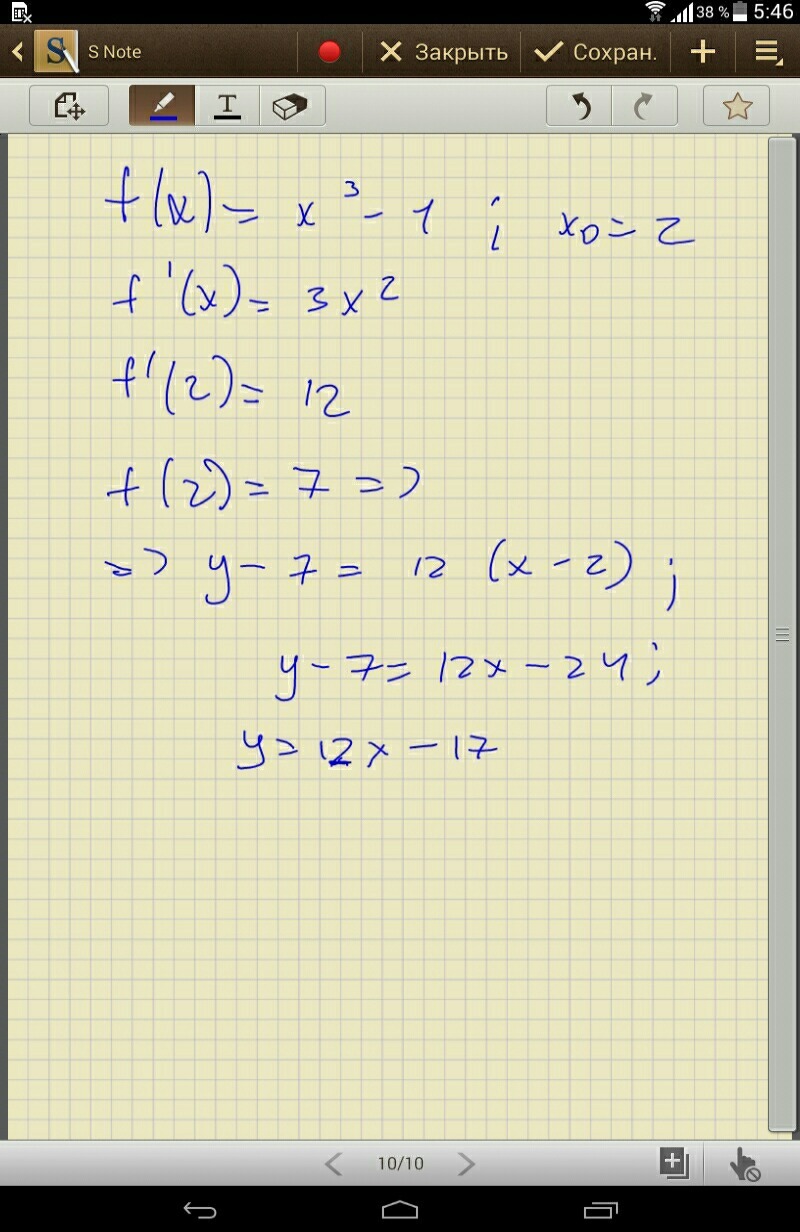 38 % 5:46
S Note Закрыть Сохран.
T
f(x) = x³ - 1 ; x₀ = 2
f'(x) = 3x²
f'(2) = 12
f(2) = 7 =>
=> y - 7 = 12 (x - 2) ;
y - 7 = 12x - 24 ;
y = 12x - 17
10/10